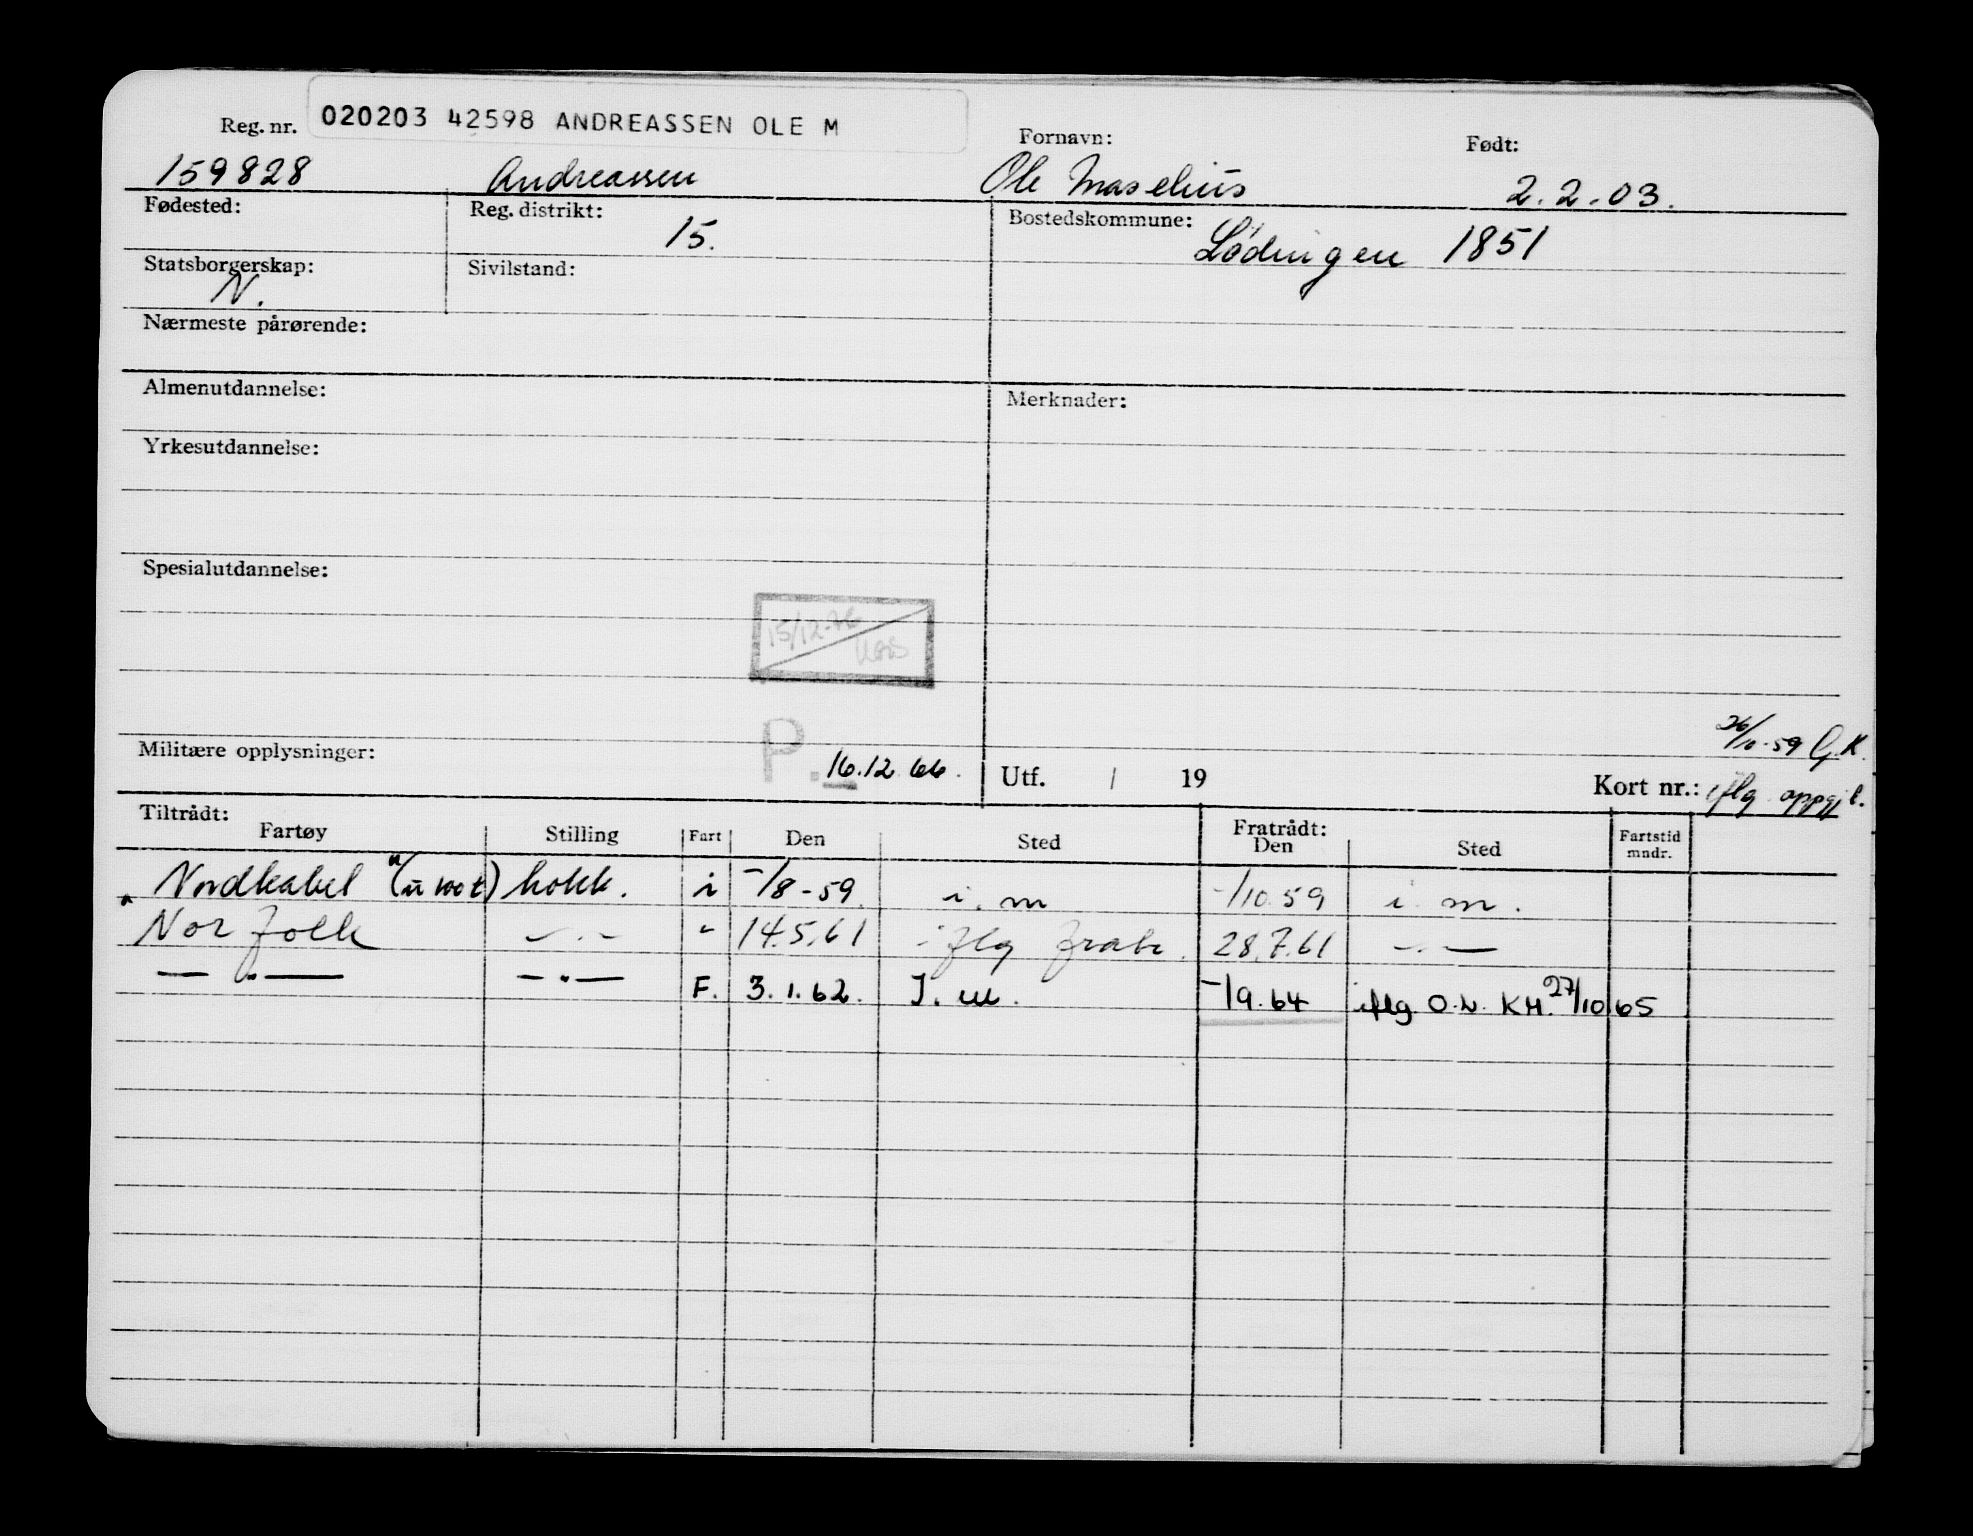 020203 42598 ANDREASSEN OLE M
Reg. nr. Fornavn: Født:
159828 Andreassen Ole Maselius 2.2.03.
Fødested: Reg. distrikt: 15. Bostedskommune: Lødingen 1851
Statsborgerskap: N. Sivilstand:
Nærmeste pårørende:
Almenutdannelse: Merknader:
Yrkesutdannelse:
Spesialutdannelse:
15/12-76
26/10-59 G.K.
Militære opplysninger: P. 16.12.66. Utf. / 19 Kort nr.: iflg. oppgj.
Tiltrådt: Fratrådt:
Fartøy Stilling Fart Den Sted Den Sted Fartstid mndr.
"Nordkabel" (u 100 t) kokk. i -/8-59. i.m -/10.59 i.m.
Norfolk —"— " 14.5.61 iflg. 28.7.61 —"—
— " — —"— F. 3.1.62. I.m. -/9.64 iflg. O.N. KH. 27/10 65